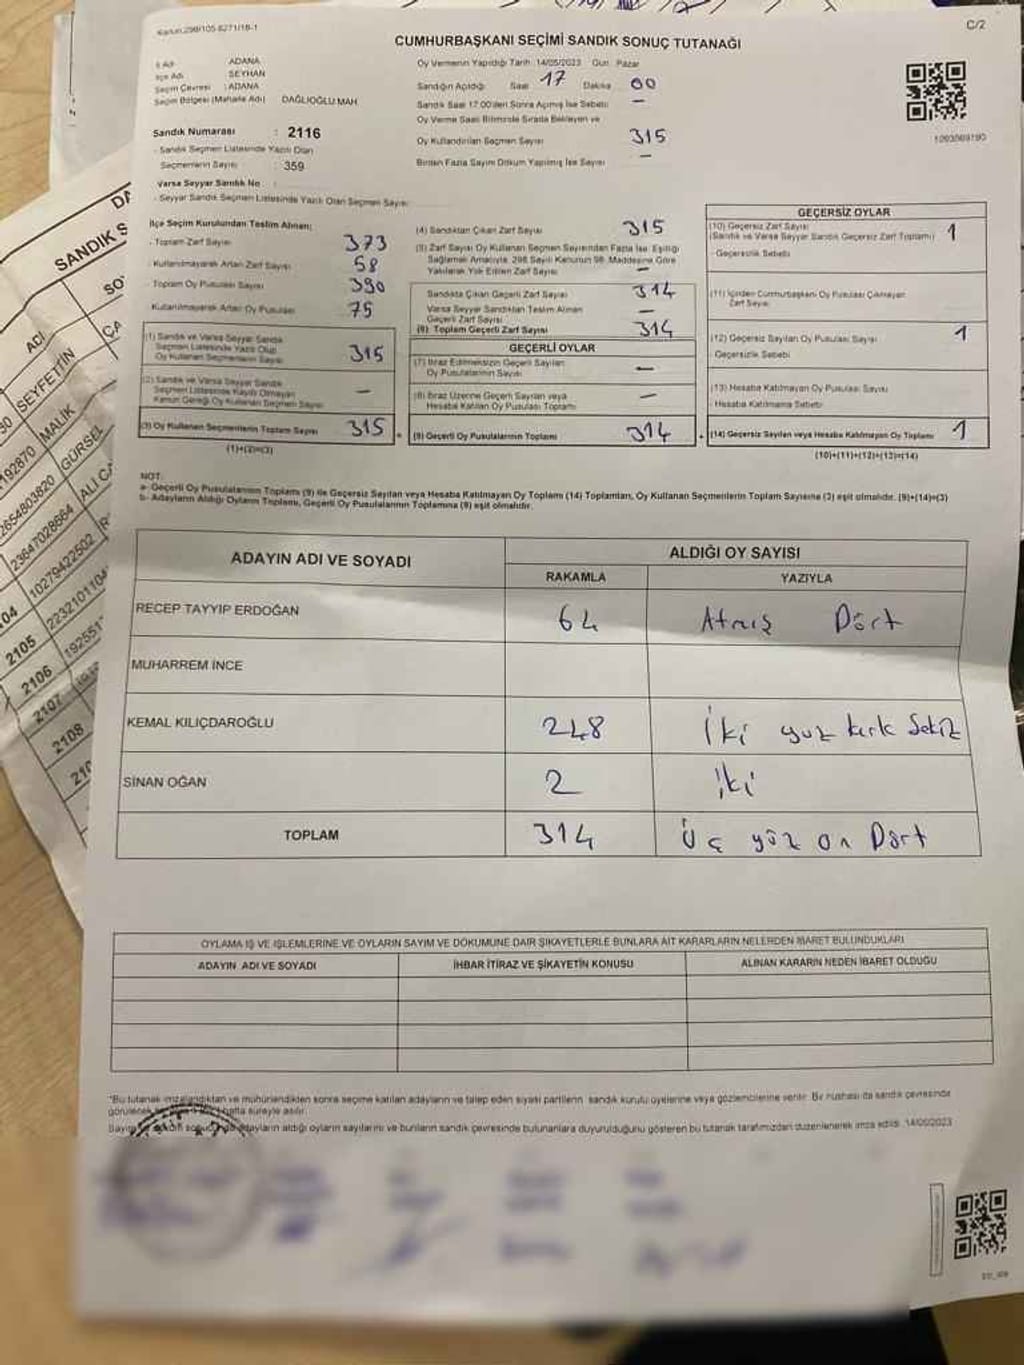 Kanun:298/105-6271/18-1
C/2
CUMHURBAŞKANI SEÇİMİ SANDIK SONUÇ TUTANAĞI
İl Adı ADANA
İlçe Adı SEYHAN
Seçim Çevresi : ADANA
Seçim Bölgesi (Mahalle Adı) DAĞLIOĞLU MAH.
Sandık Numarası : 2116
- Sandık Seçmen Listesinde Yazılı Olan
Seçmenlerin Sayısı : 359
Varsa Seyyar Sandık No :
- Seyyar Sandık Seçmen Listesinde Yazılı Olan Seçmen Sayısı
Oy Vermenin Yapıldığı Tarih 14/05/2023 Gün Pazar
Sandığın Açıldığı Saat 17 Dakika 00
Sandık Saat 17.00'den Sonra Açılmış İse Sebebi —
Oy Verme Saati Bitiminde Sırada Bekleyen ve
Oy Kullandırılan Seçmen Sayısı 315
Birden Fazla Sayım Döküm Yapılmış İse Sayısı —
1093069190
İlçe Seçim Kurulundan Teslim Alınan;
- Toplam Zarf Sayısı 373
- Kullanılmayarak Artan Zarf Sayısı 58
- Toplam Oy Pusulası Sayısı 390
- Kullanılmayarak Artan Oy Pusulası 75
(1) Sandık ve Varsa Seyyar Sandık
Seçmen Listesinde Yazılı Olup
Oy Kullanan Seçmenlerin Sayısı 315
(2) Sandık ve Varsa Seyyar Sandık
Seçmen Listesinde Kaydı Olmayan
Kanun Gereği Oy Kullanan Seçmen Sayısı —
(3) Oy Kullanan Seçmenlerin Toplam Sayısı 315
(1)+(2)=(3)
(4) Sandıktan Çıkan Zarf Sayısı 315
(5) Zarf Sayısı Oy Kullanan Seçmen Sayısından Fazla İse, Eşitliği
Sağlamak Amacıyla, 298 Sayılı Kanunun 98. Maddesine Göre
Yakılarak Yok Edilen Zarf Sayısı —
Sandıkta Çıkan Geçerli Zarf Sayısı 314
Varsa Seyyar Sandıktan Teslim Alınan
Geçerli Zarf Sayısı —
(6) Toplam Geçerli Zarf Sayısı 314
GEÇERLİ OYLAR
(7) İtiraz Edilmeksizin Geçerli Sayılan
Oy Pusulalarının Sayısı —
(8) İtiraz Üzerine Geçerli Sayılan veya
Hesaba Katılan Oy Pusulası Toplamı —
(9) Geçerli Oy Pusulalarının Toplamı 314
GEÇERSİZ OYLAR
(10) Geçersiz Zarf Sayısı 1
(Sandık ve Varsa Seyyar Sandık Geçersiz Zarf Toplamı)
- Geçersizlik Sebebi
(11) İçinden Cumhurbaşkanı Oy Pusulası Çıkmayan
Zarf Sayısı
(12) Geçersiz Sayılan Oy Pusulası Sayısı 1
Geçersizlik Sebebi
(13) Hesaba Katılmayan Oy Pusulası Sayısı
- Hesaba Katılmama Sebebi
(14) Geçersiz Sayılan veya Hesaba Katılmayan Oy Toplamı 1
(10)+(11)+(12)+(13)=(14)
NOT:
a- Geçerli Oy Pusulalarının Toplamı (9) ile Geçersiz Sayılan veya Hesaba Katılmayan Oy Toplamı (14) Toplamları, Oy Kullanan Seçmenlerin Toplam Sayısına (3) eşit olmalıdır. (9)+(14)=(3)
b- Adayların Aldığı Oyların Toplamı, Geçerli Oy Pusulalarının Toplamına (9) eşit olmalıdır.
ADAYIN ADI VE SOYADI ALDIĞI OY SAYISI
RAKAMLA YAZIYLA
RECEP TAYYIP ERDOĞAN 64 Atmış Dört
MUHARREM İNCE
KEMAL KILIÇDAROĞLU 248 İki yüz kırk Sekiz
SİNAN OĞAN 2 İki
TOPLAM 314 Üç yüz on Dört
OYLAMA İŞ VE İŞLEMLERİNE VE OYLARIN SAYIM VE DÖKÜMÜNE DAİR ŞİKAYETLERLE BUNLARA AİT KARARLARIN NELERDEN İBARET BULUNDUKLARI
ADAYIN ADI VE SOYADI İHBAR İTİRAZ VE ŞİKAYETİN KONUSU ALINAN KARARIN NEDEN İBARET OLDUĞU
*Bu tutanak imzalandıktan ve mühürlendikten sonra seçime katılan adayların ve talep eden siyasi partilerin sandık kurulu üyelerine veya gözlemcilerine verilir. Bir nüshası da sandık çevresinde
görülecek hafta süreyle asılır.
adayların aldığı oyların sayılarını ve bunların sandık çevresinde bulunanlara duyurulduğunu gösteren bu tutanak tarafımızdan düzenlenerek imza edildi. 14/05/2023
SANDIK S
ADI
SEYFETİN
MALİK
192870
GÜRSEL
2654803820
ALİ CA
23647028664
10279422502
2105
2106
192551
2107
2108